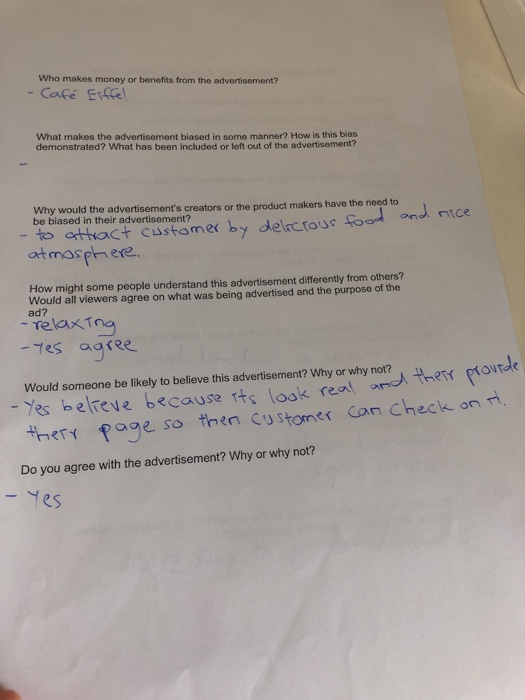 Who makes money or benefits from the advertisement?
- Café Eiffel
What makes the advertisement biased in some manner? How is this bias
demonstrated? What has been included or left out of the advertisement?
-
Why would the advertisement's creators or the product makers have the need to
be biased in their advertisement?
- to attract customer by delicious food and nice
atmosphere.
How might some people understand this advertisement differently from others?
Would all viewers agree on what was being advertised and the purpose of the
ad?
- relaxing
- Yes agree
Would someone be likely to believe this advertisement? Why or why not?
- Yes believe because its look real and their provide
their page so then customer can check on it.
Do you agree with the advertisement? Why or why not?
- Yes